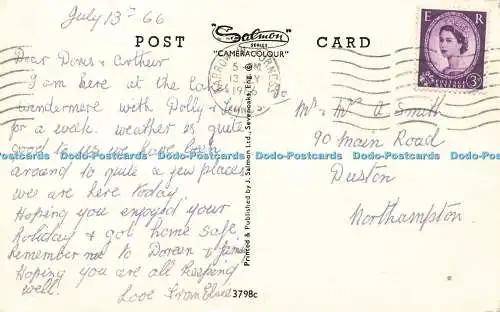 July 13th 66
POST
Salmon
SERIES
"CAMERACOLOUR"
CARD
E R
POSTAGE REVENUE
3D
5 - PM
13 JY
1966
BARROW
FURNESS
Dear Doris & Arthur
I am here at the lake
windermere with Dolly &
for a week. weather is quite
good to us we have been
around to quite a few places
we are here today.
Hoping you enjoyed your
holiday & got home safe
Remember me to Doreen &
Hoping you are all keeping
well.
Love from Elsie
Mr & Mrs A Smith
90 Main Road
Duston
Northampton.
Printed & Published by J. Salmon Ltd., Sevenoaks, Eng. ©
3798c
Postcards Information Postcards Information Postcards Information